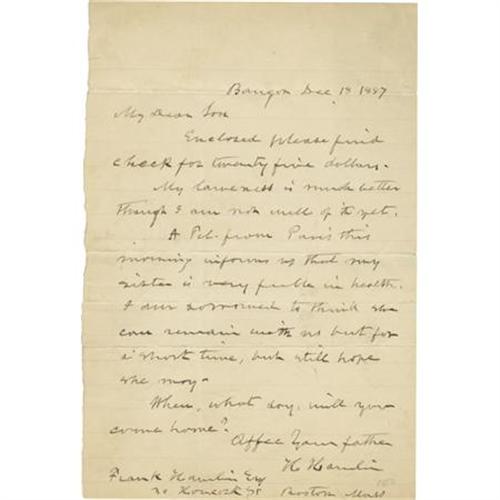 Bangor Dec 19 1887
My Dear Son
Enclosed please find
check for twenty five dollars.
My lameness is much better
though I am not well of it yet.
A Pcl. from Paris this
morning informs us that my
sister is very feeble in health.
I am sorrowed to think she
can remain with us but for
a short time, but still hope
she may-
When, what day, will you
come home?
Affec Your father
H Hamlin
Frank Hamlin Esq
Hancock St
Boston Mass